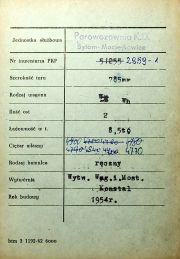 Jednostka służbowa
Parowozownia Kl.II
Bytom-Maciejkowice
Nr inwentarza PKP 51255 2989-1
Szerokość toru 785mm
Rodzaj wagonu Wh
Ilość osi 2
Ładowność w t. 8,5t
Ciężar własny 4700 4740
4740 4770
Rodzaj hamulca ręczny
Wytwórnia Wytw. Wag.i Most.
Konstal
Rok budowy 1954r.